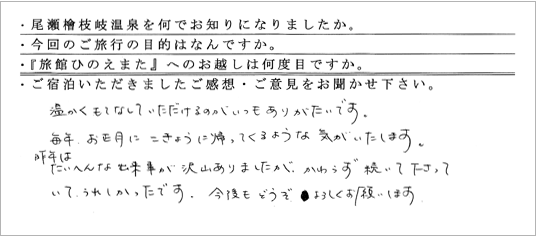 ・尾瀬檜枝岐温泉を何でお知りになりましたか。
・今回のご旅行の目的はなんですか。
・『旅館ひのえまた』へのお越しは何度目ですか。
・ご宿泊いただきましたご感想・ご意見をお聞かせ下さい。
温かくもてなしていただけるのがいつもありがたいです。
毎年、お正月にこきょうに帰ってくるような気がいたします。
昨年は
たいへんな出来事が沢山ありましたが、かわらず続いて下さって
いて、うれしかったです。今後もどうぞよろしくお願いします